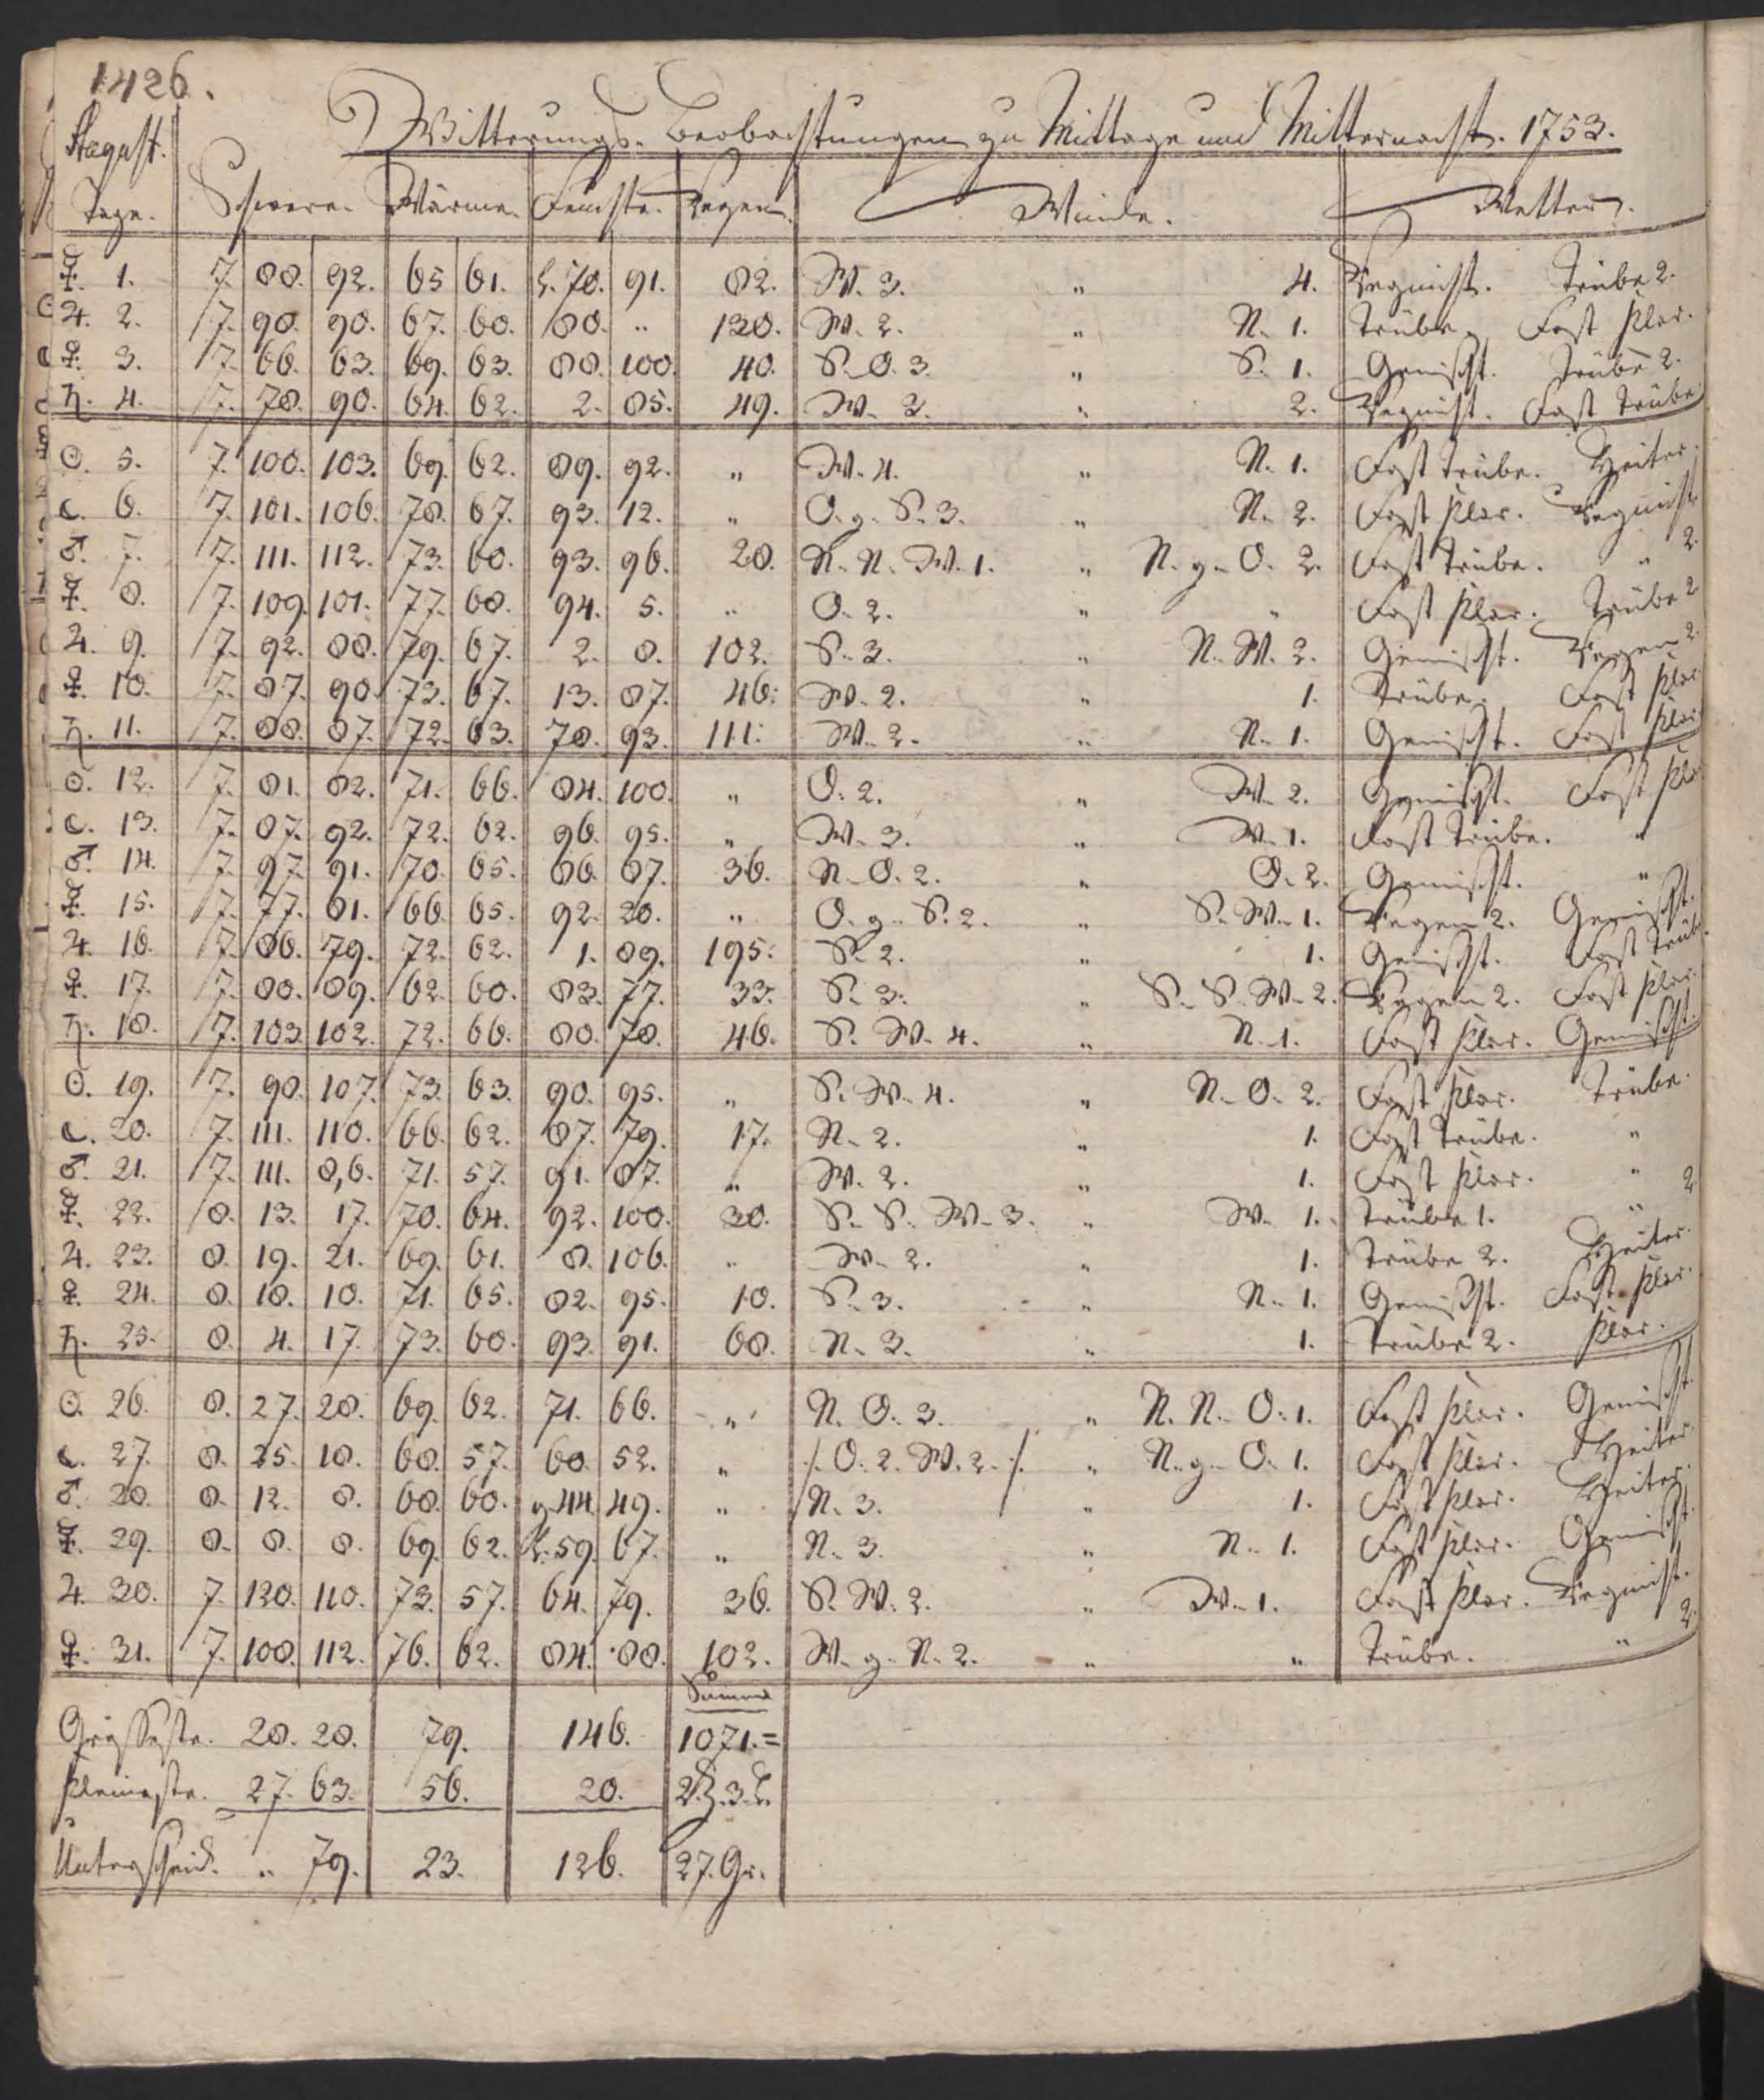 1426.
August. Witterungs-Beobachtungen zu Mittage und Mitternacht. 1753.
Tage. Schwere. Wärme. Feuchte. Regen. Winde. Wetter.
☿. 1. 7. 88. 92. 65 61. 78. 91. 82. W. 3. " 4. Regnicht. Trübe 2.
♃. 2. 7. 90. 90. 67. 60. 80. " 130. W. 2. " N. 1. Trübe. Fast klar.
♀. 3. 7. 66. 63. 69. 63. 88. 100. 40. S. O. 3. " S. 1. Gemischt. Trübe 2.
♄. 4. 7. 78. 90. 64. 62. 2. 85. 49. W. 3. " 2. Regnicht. Fast trübe
☉. 5. 7. 100. 103. 69. 62. 89. 92. " W. 4. " N. 1. Fast trübe. Heiter.
☾. 6. 7. 101. 106. 78. 67. 93. 12. " O. g. S. 3. " N. 2. Fast klar. Regnicht
♂. 7. 7. 111. 112. 73. 60. 93. 96. 28. N. N. W. 1. " N. g. O. 2. Fast trübe. " 2.
☿. 8. 7. 109. 101. 77. 68. 94. 5. " O. 2. " " Fast klar. Trübe 2
♃. 9. 7. 92. 88. 79. 67. 2. 8. 102. S. 3. " N. W. 2. Gemischt. Regen 2.
♀. 10. 7. 87. 90. 73. 67. 13. 87. 46. W. 2. " 1. Trübe. Fast klar
♄. 11. 7. 88. 87. 72. 63. 78. 93. 111. W. 2. " N. 1. Gemischt. Fast klar
☉. 12. 7. 81. 82. 71. 66. 84. 100. " O. 2. " W. 2. Gemischt. Fast kla
☾. 13. 7. 87. 92. 72. 62. 96. 95. " W. 3. " W. 1. Fast trübe. "
♂. 14. 7. 97. 91. 70. 65. 86. 87. 36. N. O. 2. " O. 2. Gemischt. "
☿. 15. 7. 77. 81. 66. 65. 92. 20. " O. g. S. 2. " S. W. 1. Regen 2. Gemischt.
♃. 16. 7. 86. 79. 72. 62. 1. 89. 195. S. 2. " 1. Gemischt. Fast trüb
♀. 17. 7. 80. 89. 62. 60. 83. 77. 33. S. 3. " S. S. W. 2. Regen 2. Fast klar.
♄. 18. 7. 103. 102. 72. 66. 80. 78. 46. S. W. 4. " N. 1. Fast klar. Gemischt.
☉. 19. 7. 98. 107. 73. 63. 90. 95. " S. W. 4. " N. O. 2. Fast klar. Trübe.
☾. 20. 7. 111. 110. 66. 62. 87. 79. 17. N. 2. " 1. Fast trübe. "
♂. 21. 7. 111. 8,6. 71. 57. 91. 87. " W. 2. " 1. Fast klar. "
☿. 22. 8. 13. 17. 70. 64. 92. 100. 30. S. S. W. 3. " W. 1. Trübe 1. " 2
♃. 23. 8. 19. 21. 69. 61. 8. 106. " W. 2. " 1. Trübe 2. Heiter.
♀. 24. 8. 18. 10. 71. 65. 82. 95. 10. S. 3. " N. 1. Gemischt. Fast klar.
♄. 25. 8. 4. 17. 73. 60. 93. 91. 68. N. 3. " 1. Trübe 2. klar.
☉. 26. 8. 27. 28. 69. 62. 71. 66. " N. O. 3. " N. N. O. 1. Fast klar. Gemischt.
☾. 27. 8. 25. 18. 68. 57. 60. 52. " /. O. 2. W. 2. /. " N. g. O. 1. Fast klar. Heiter.
♂. 28. 8. 12. 8. 68. 60. g. 44. 49. " N. 3. " 1. Fast klar. Heiter.
☿. 29. 8. 8. 8. 69. 62. 59. 67. " N. 3. " N. 1. Fast klar. Gemischt.
♃. 30. 7. 120. 110. 73. 57. 64. 79. 36. S. W. 2. " W. 1. Fast klar. Regnicht.
♀. 31. 7. 108. 112. 76. 62. 84. 88. 102. W. g. N. 2. " " Trübe. " 2.
Summe
Grösseste. 28. 28. 79. 146. 1071. =
Kleineste. 27. 63. 56. 20. 3.
Unterscheid. " 79. 23. 126. 27. Gr.